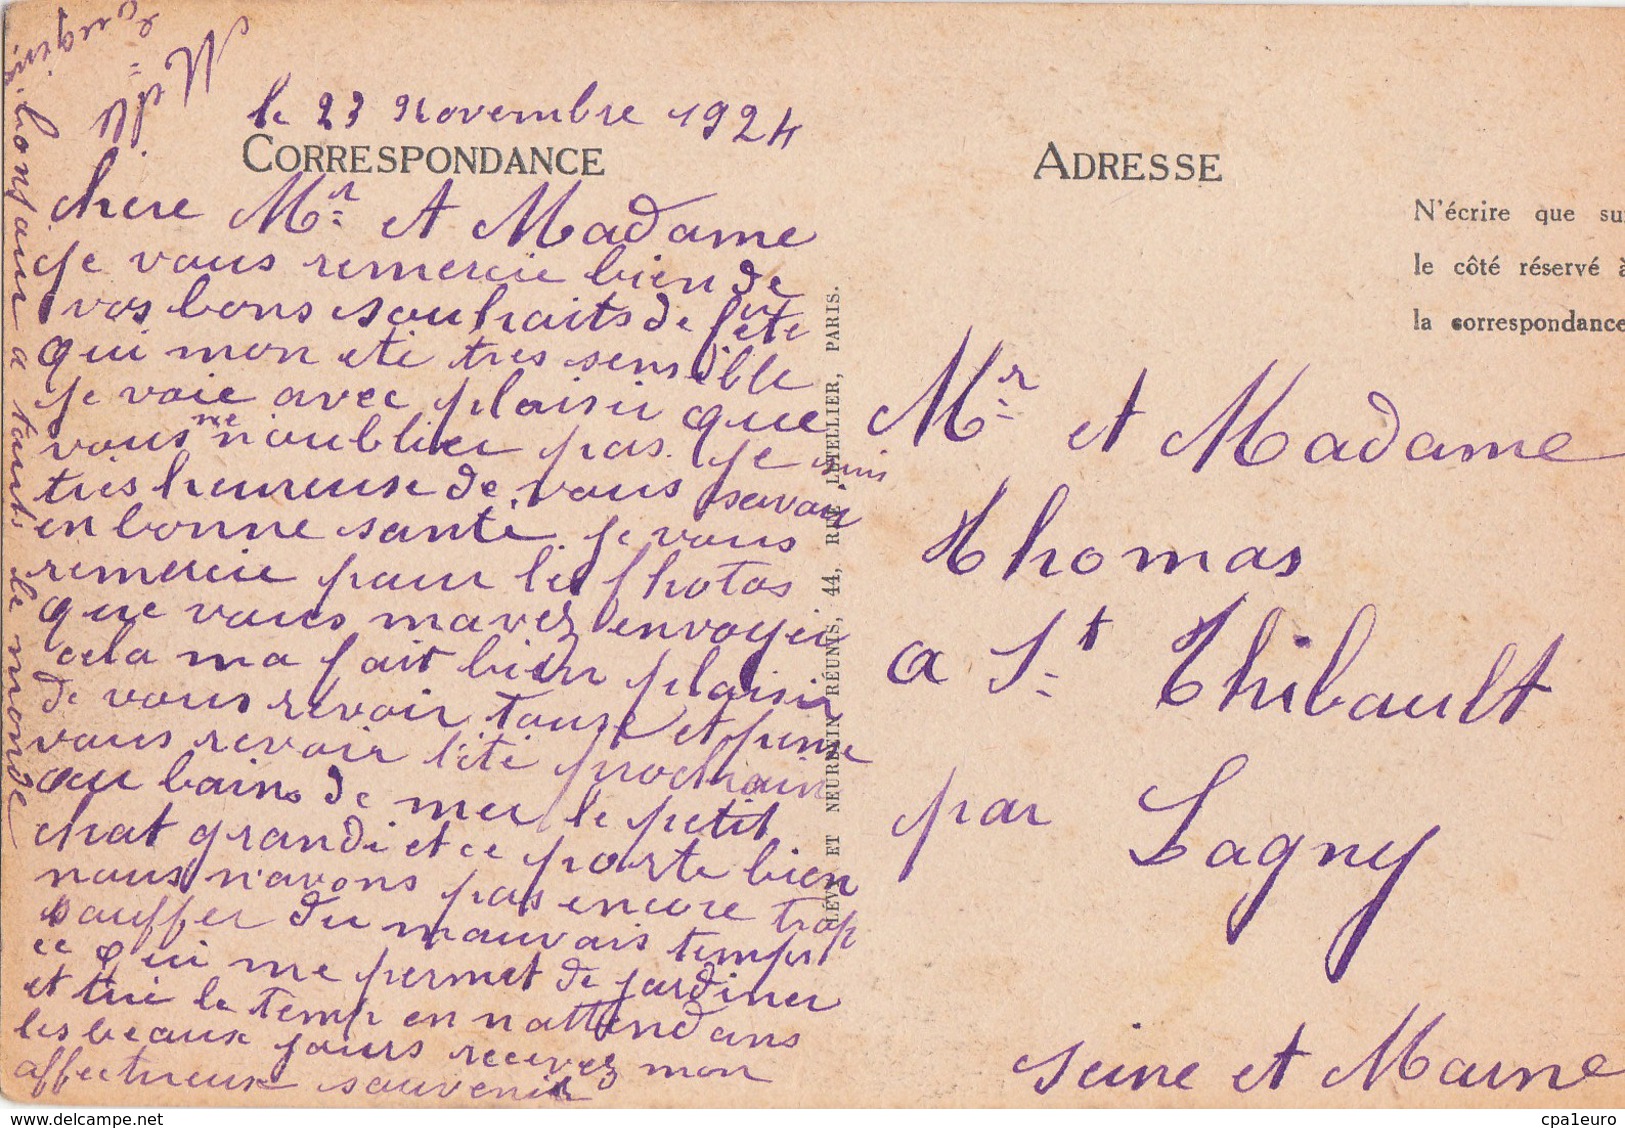 le 23 Novembre 1924
CORRESPONDANCE
chere Mr et Madame
je vous remercie bien de
vos bons souhaits de fête
qui mon été tres sensible
je voie avec plaisir que
vous me n'oublier pas. je suis
très heureuse de vous savoir
en bonne santé. je vous
remercie pour les photos
que vous mavez envoyer
cela ma fait bien plaisir
de vous revoir touse et
vous revoir l'été prochain
au bains de mer le petit
chat grandi et ce porte bien
nous n'avons pas encore trop
sauffer du mauvais temps
ce qui me permet de jardiner
et tué le temp en nattendans
les beaux jours recevez mon
affectueux souvenir
bonjour a touts le monde
Eugénie
ADRESSE
N'écrire que sur
le côté réservé à
la correspondance
Mr et Madame
Thomas
a St Thibault
par Lagny
Seine et Marne
LÉVY ET NEURDEIN RÉUNIS, 44, RUE LETELLIER, PARIS.
cpa1euro